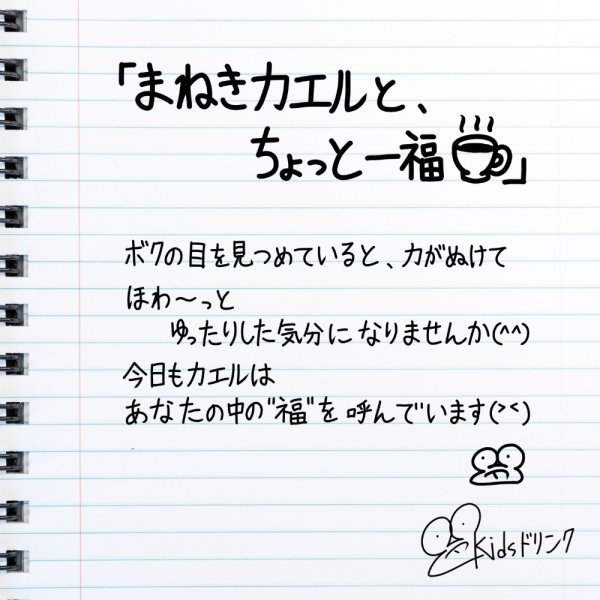 「まねきカエルと、
ちょっと一福」
ボクの目を見つめていると、力がぬけて
ほわ〜っと
ゆったりした気分になりませんか(^^)
今日もカエルは
あなたの中の"福"を呼んでいます(><)
Kidsドリンク